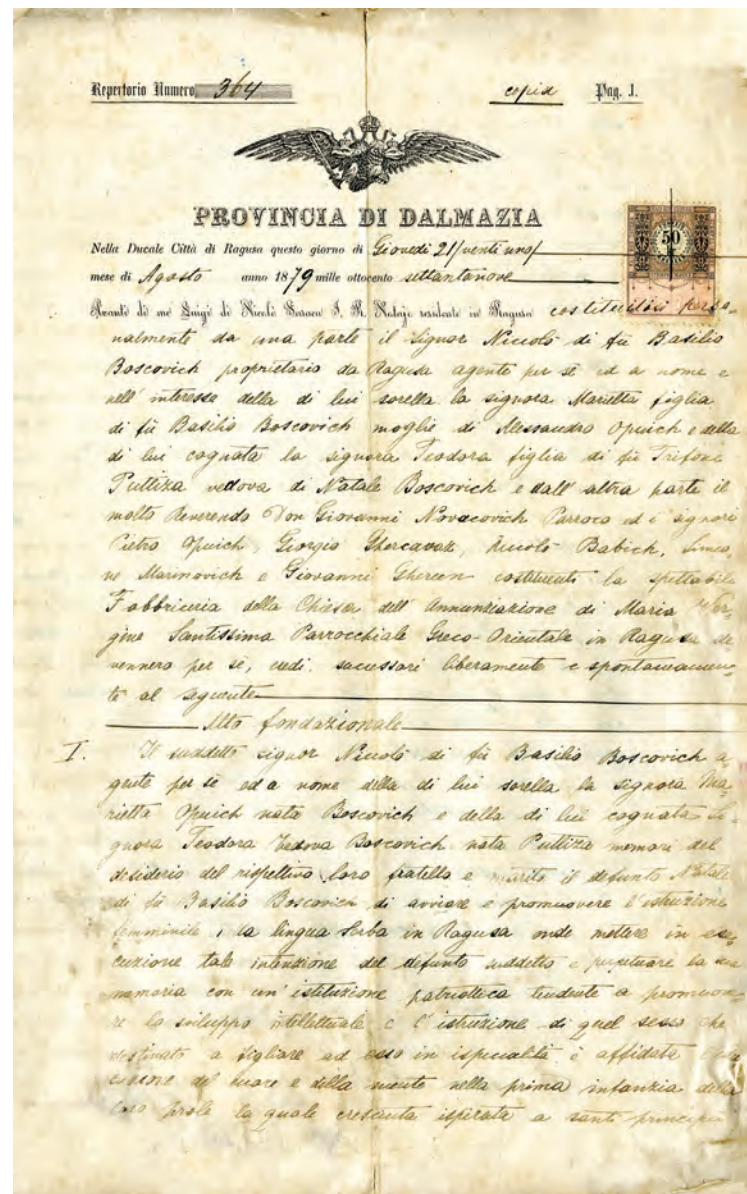 Repertorio Numero 364 copia Pag. 1.
PROVINCIA DI DALMAZIA
50
Nella Ducale Città di Ragusa questo giorno di Giovedì 21/venti uno/
mese di Agosto anno 1879 mille ottocento settantanove
Avanti di me Luigi di Nicolò Saraca I. R. Notajo residente in Ragusa costituitisi perso-
nalmente da una parte il Signor Niccolò di fù Basilio
Boscovich proprietario da Ragusa agente per sè ed a nome e
nell' interesse della di lui sorella la signora Marietta figlia
di fù Basilio Boscovich moglie di Alessandro Opuich e della
di lui cognata la signora Teodora figlia di fù Trifone
Puttiza vedova di Natale Boscovich e dall' altra parte il
molto Reverendo Don Giovanni Novacovich Parroco ed i signori
Pietro Opuich, Giorgio Niccolò Babich, Simeo-
ne Marinovich e Giovanni costituenti la spettabile
Fabbriceria della Chiesa dell' Annunziazione di Maria Ver-
gine Santissima Parrocchiale Greco-Orientale in Ragusa de
vennero per sè, eredi, successori liberamente e spontaneamen-
te al seguente
Atto fondazionale
I. Il suddetto signor Niccolò di fù Basilio Boscovich a-
gente per sè ed a nome della di lui sorella la signora Ma-
rietta Opuich nata Boscovich e della di lui cognata Si-
gnora Teodora Vedova Boscovich nata Puttiza memori del
desiderio del rispettivo loro fratello e marito il defunto Natale
di fù Basilio Boscovich di avviare e promuovere l'istruzione
femminile, la lingua Serba in Ragusa onde mettere in ese-
cuzione tale intenzione del defunto suddetto e perpetuare la sua
memoria con un' istituzione patriottica tendente a promuove-
re lo sviluppo intellettuale e l'istruzione di quel sesso che
destinato a figliare ad esso in ispecialità è affidata
del cuore e della mente nella prima infanzia della
loro prole la quale cresciuta ispirata a santi principii